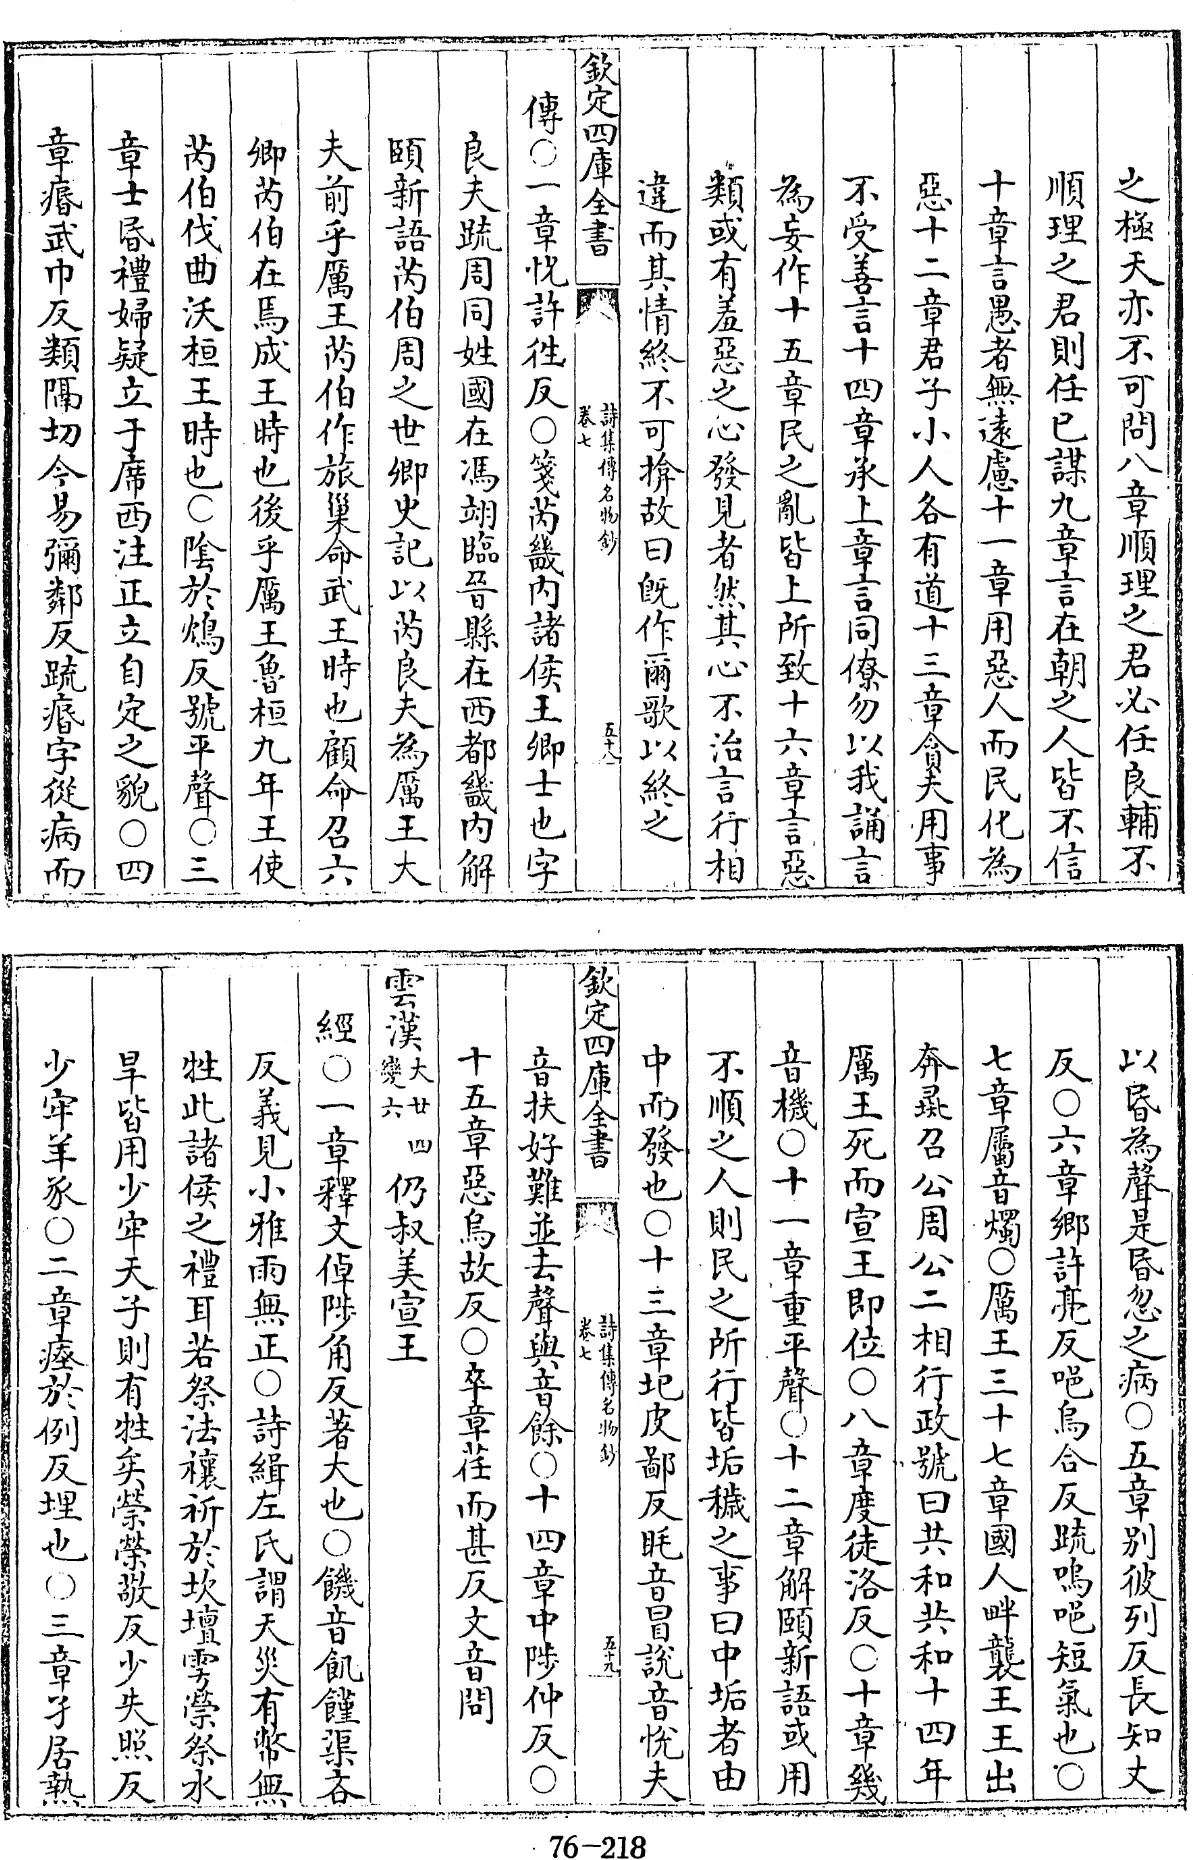 之極天亦不可問八章順理之君必任良輔不
順理之君則任已謀九章言在朝之人皆不信
十章言愚者無遠慮十一章用惡人而民化為
惡十二章君子小人各有道十三章貪夫用事
不受善言十四章承上章言同僚勿以我誦言
為妄作十五章民之亂皆上所致十六章言惡
類或有羞惡之心發見者然其心不治言行相
違而其情終不可揜故曰旣作爾歌以終之
欽定四庫全書
詩集傳名物鈔
卷七
五十八
傳○一章怳許徃反○箋芮畿内諸侯王卿士也字
良夫疏周同姓國在馮翊臨晉縣在西都畿内解
頤新語芮伯周之世卿史記以芮良夫為厲王大
夫前乎厲王芮伯作旅巢命武王時也顧命召六
卿芮伯在焉成王時也後乎厲王魯桓九年王使
芮伯伐曲沃桓王時也○隂於鴆反號平聲○三
章士昏禮婦疑立于席西注正立自定之貌○四
章瘽武巾反類隔切今易彌鄰反疏瘽字從病而
以昏為聲是昏忽之病○五章别彼列反長知丈
反○六章鄉許亮反唈烏合反疏嗚唈短氣也○
七章屬音燭○厲王三十七章國人畔襲王王出
奔彘召公周公二相行政號曰共和共和十四年
厲王死而宣王即位○八章度徒洛反○十章幾
音機○十一章重平聲○十二章解頤新語或用
不順之人則民之所行皆垢穢之事曰中垢者由
中而發也○十三章圮皮鄙反眊音冒說音悅夫
欽定四庫全書
詩集傳名物鈔
卷七
五十九
音扶好難並去聲與音餘○十四章中陟仲反○
十五章惡烏故反○卒章荏而甚反文音問
雲漢大廿四變六仍叔美宣王
經○一章釋文倬陟角反著大也○饑音飢饉渠吝
反義見小雅雨無正○詩緝左氏謂天災有幣無
牲此諸侯之禮耳若祭法禳祈於坎壇雩禜祭水
旱皆用少牢天子則有牲矣禜榮敬反少失照反
少牢羊豕○二章瘞於例反埋也○三章孑居熱
76-218